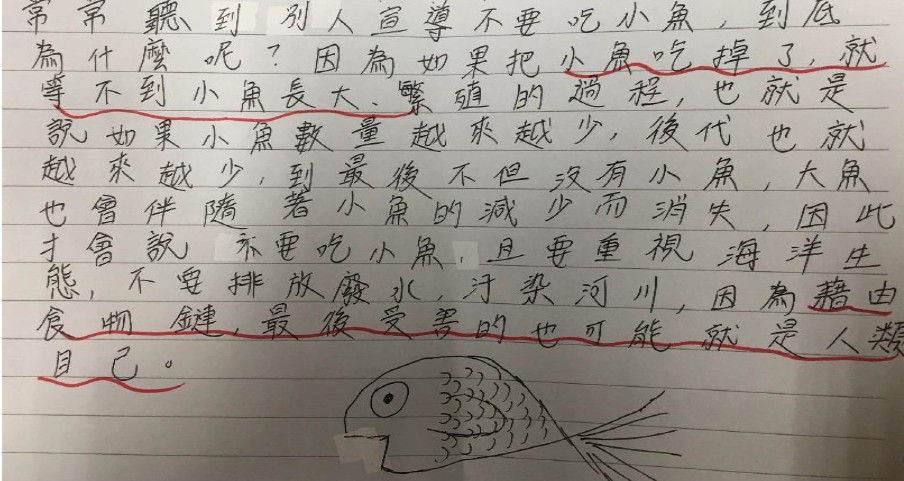 常常聽到別人宣導不要吃小魚,到底
為什麼呢?因為如果把小魚吃掉了,就
等不到小魚長大、繁殖的過程,也就是
說如果小魚數量越來越少,後代也就
越來越少,到最後不但沒有小魚,大魚
也會伴隨著小魚的減少而消失,因此
才會說不要吃小魚,且要重視海洋生
態,不要排放廢水,汙染河川,因為藉由
食物鏈,最後受害的也可能就是人類
自己。